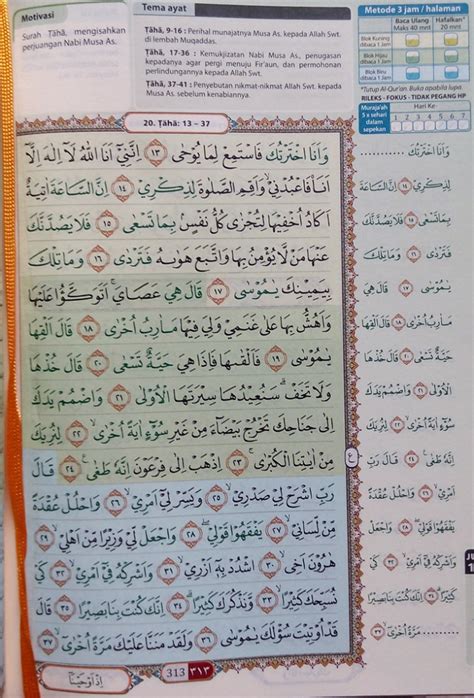 Motivasi
Surah Ṭāhā, mengisahkan
perjuangan Nabi Musa As.
Tema ayat
Ṭāhā, 9-16 : Perihal munajatnya Musa As. kepada Allah Swt.
di lembah Muqaddas.
Ṭāhā, 17-36 : Kemukjizatan Nabi Musa As., penugasan
kepadanya agar pergi menuju Fir'aun, dan permohonan
perlindungannya kepada Allah Swt.
Ṭāhā, 37-41 : Penyebutan nikmat-nikmat Allah Swt. kepada
Musa As. sebelum kenabiannya.
Metode 3 jam / halaman
Baca Ulang
Maks 40 mnt
Hafalkan
20 mnt
Blok Kuning
dibaca 1 Jam
Blok Hijau
dibaca 1 Jam
Blok Biru
dibaca 1 Jam
*Tutup Al-Qur'an. Buka apabila lupa
RILEKS - FOKUS - TIDAK PEGANG HP
Muraja'ah
5 x sehari
dalam
sepekan
Hari Ke-
1 2 3 4 5 6 7
20. Ṭāhā: 13 – 37
وَاَنَا اخْتَرْتُكَ فَاسْتَمِعْ لِمَا يُوْحٰى ١٣ اِنَّنِيْٓ اَنَا اللّٰهُ لَآ اِلٰهَ اِلَّآ
اَنَا۠ فَاعْبُدْنِيْۙ وَاَقِمِ الصَّلٰوةَ لِذِكْرِيْ ١٤ اِنَّ السَّاعَةَ اٰتِيَةٌ
اَكَادُ اُخْفِيْهَا لِتُجْزٰى كُلُّ نَفْسٍۢ بِمَا تَسْعٰى ١٥ فَلَا يَصُدَّنَّكَ
عَنْهَا مَنْ لَّا يُؤْمِنُ بِهَا وَاتَّبَعَ هَوٰىهُ فَتَرْدٰى ١٦ وَمَا تِلْكَ
بِيَمِيْنِكَ يٰمُوْسٰى ١٧ قَالَ هِيَ عَصَايَۚ اَتَوَكَّؤُا عَلَيْهَا
وَاَهُشُّ بِهَا عَلٰى غَنَمِيْ وَلِيَ فِيْهَا مَاٰرِبُ اُخْرٰى ١٨ قَالَ اَلْقِهَا
يٰمُوْسٰى ١٩ فَاَلْقٰىهَا فَاِذَا هِيَ حَيَّةٌ تَسْعٰى ٢٠ قَالَ خُذْهَا
وَلَا تَخَفْۗ سَنُعِيْدُهَا سِيْرَتَهَا الْاُوْلٰى ٢١ وَاضْمُمْ يَدَكَ
اِلٰى جَنَاحِكَ تَخْرُجْ بَيْضَاۤءَ مِنْ غَيْرِ سُوْۤءٍ اٰيَةً اُخْرٰىۙ ٢٢ لِنُرِيَكَ
مِنْ اٰيٰتِنَا الْكُبْرٰىۚ ٢٣ اِذْهَبْ اِلٰى فِرْعَوْنَ اِنَّهٗ طَغٰىۚ ٢٤ قَالَ
رَبِّ اشْرَحْ لِيْ صَدْرِيْۙ ٢٥ وَيَسِّرْ لِيْٓ اَمْرِيْۙ ٢٦ وَاحْلُلْ عُقْدَةً
مِّنْ لِّسَانِيْۙ ٢٧ يَفْقَهُوْا قَوْلِيْۖ ٢٨ وَاجْعَلْ لِّيْ وَزِيْرًا مِّنْ اَهْلِيْۙ ٢٩
هٰرُوْنَ اَخِىۙ ٣٠ اشْدُدْ بِهٖٓ اَزْرِيْۙ ٣١ وَاَشْرِكْهُ فِيْٓ اَمْرِيْۙ ٣٢ كَيْ
نُسَبِّحَكَ كَثِيْرًاۙ ٣٣ وَّنَذْكُرَكَ كَثِيْرًاۗ ٣٤ اِنَّكَ كُنْتَ بِنَا بَصِيْرًا ٣٥ قَالَ
قَدْ اُوْتِيْتَ سُؤْلَكَ يٰمُوْسٰى ٣٦ وَلَقَدْ مَنَنَّا عَلَيْكَ مَرَّةً اُخْرٰىٓۙ ٣٧
وَاَنَا اخْتَرْتُكَ ..........
لِذِكْرِيْ ١٤ اِنَّ السَّاعَةَ
بِمَا تَسْعٰى ١٥ فَلَا يَصُدَّنَّكَ
فَتَرْدٰى ١٦ وَمَا تِلْكَ
يٰمُوْسٰى ١٧ قَالَ هِيَ
مَاٰرِبُ اُخْرٰى ١٨ قَالَ اَلْقِهَا
حَيَّةٌ تَسْعٰى ٢٠ قَالَ خُذْهَا
الْاُوْلٰى ٢١ وَاضْمُمْ يَدَكَ
سُوْۤءٍ اٰيَةً اُخْرٰىۙ ٢٢ لِنُرِيَكَ
اِنَّهٗ طَغٰىۚ ٢٤ قَالَ رَبِّ
اَمْرِيْۙ ٢٦ وَاحْلُلْ عُقْدَةً
يَفْقَهُوْا قَوْلِيْۖ ٢٨ وَاجْعَلْ
وَاَشْرِكْهُ فِيْٓ اَمْرِيْۙ ٣٢ كَيْ
كَثِيْرًاۗ ٣٤ اِنَّكَ كُنْتَ بِنَا بَصِيْرًا
.......... مَرَّةً اُخْرٰىٓۙ ٣٧
ع
اِذْ اَوْحَيْنَآ
313 ٣١٣